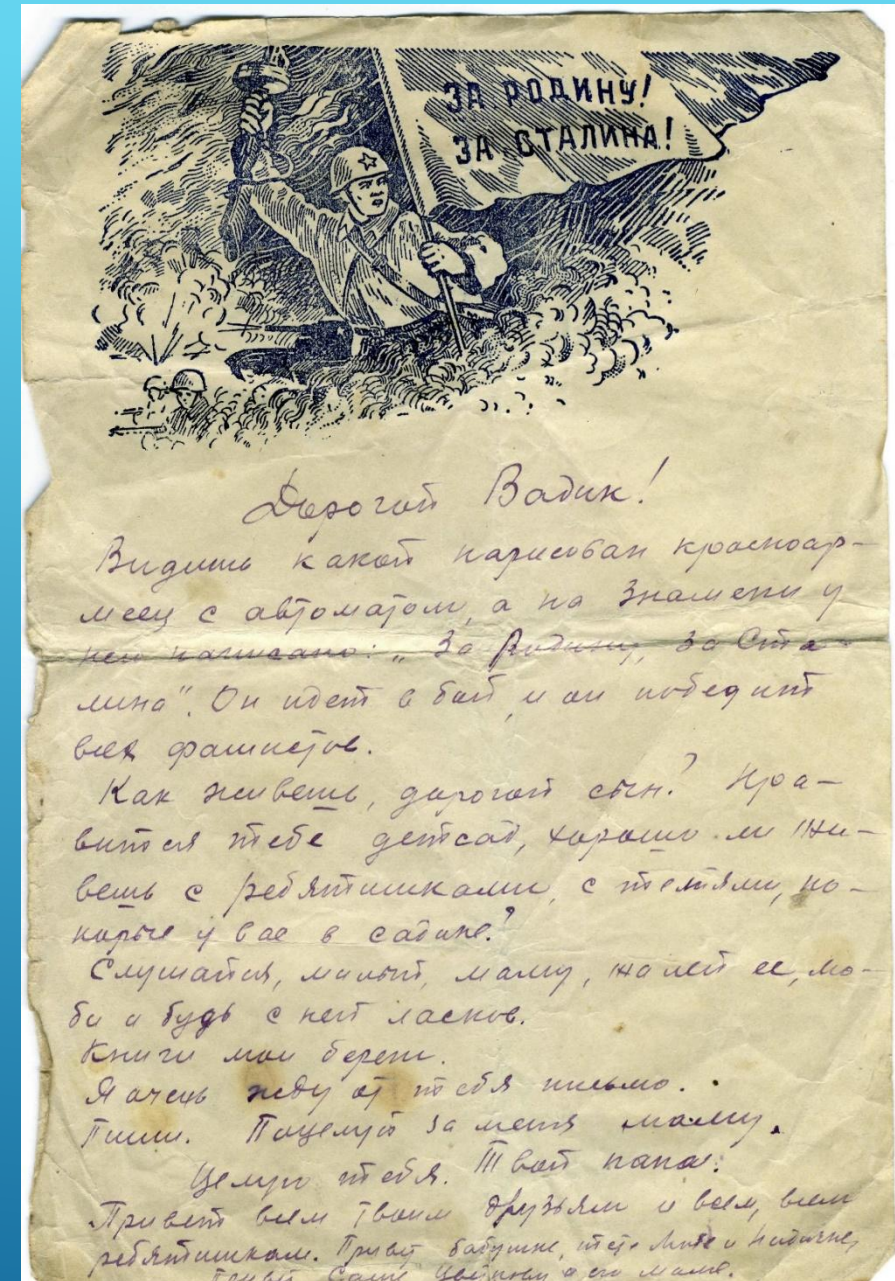 ЗА РОДИНУ!
ЗА СТАЛИНА!
Дорогой Вадик!
Видишь какой нарисован красноар-
меец с автоматом, а на знамени у
ней написано: „За Родину, за Ста-
лина". Он идет в бой, и он победит
всех фашистов.
Как живешь, дорогой сын? Нра-
вится тебе детсад, хорошо ли жи-
вешь с ребятишками, с тетями, ко-
торые у вас в садике?
Слушайся, милый, маму, жалей ее, лю-
би и будь с ней ласков.
Книги мои береги.
Я очень жду от тебя письмо.
Пиши. Поцелуй за меня маму.
Целую тебя. Твой папа.
Привет всем твоим друзьям и всем, всем
ребятишкам. Привет бабушке, тете и
Привет Саше и его маме.